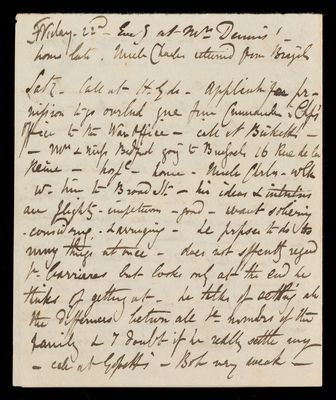 Friday. 22nd Eveg at Mrs Dennis' -
home late. Uncle Charles returned from Brussels
Saty - Call at Hyde - Application for per-
mission to go overland gone from Commander in Chief's
office to the War Office - call at Bicketts -
- Mrs & Miss Bedford going to Brussels 16 Rue de la
Reine - home - Uncle Charles - walk
with him to Broad St - his ideas & intentions
are flighty - impetuous - good - want sobering
- considering - & arranging - he proposes to do too
many things at once - does not sufficiently regard
the barriers but looks only at the end he
thinks of getting at - he talks of settling all
the differences between all the members of the
family & I doubt if he really settle any
- call at - Bob very weak -